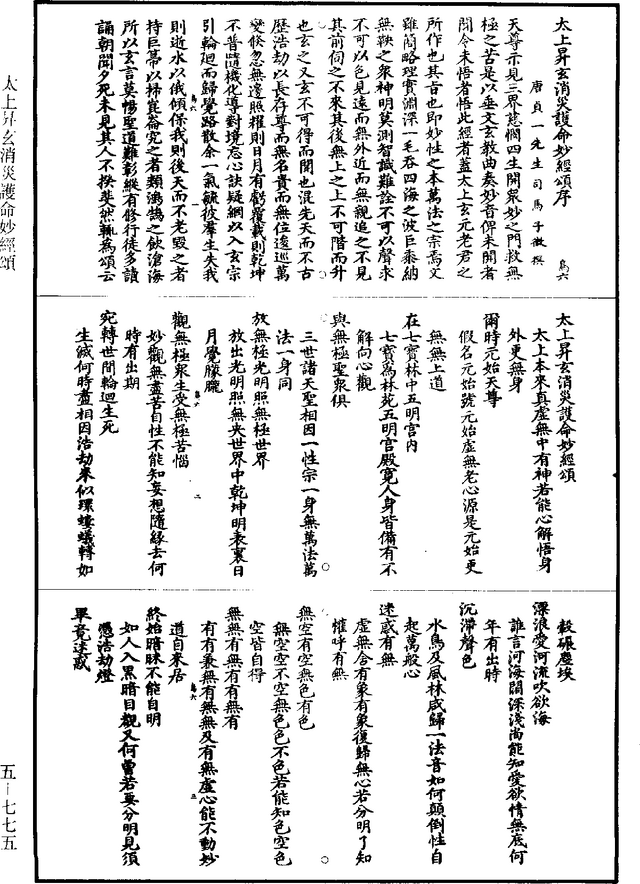 太上昇玄消災護命妙經頌
五－七七五
太上昇玄消災護命妙經頌序
唐貞一先生司馬子微撰
鳥六
天尊示見三界慈憫四生開衆妙之門救無
極之苦是以垂文玄教曲奏妙音俾未聞者
聞令未悟者悟此經者蓋太上玄元老君之
所作也其旨也即妙性之本萬法之宗焉文
雖簡略理實淵深一毛吞四海之波巨黍納
無鞅之衆神明莫測智識難詮不可以聲求
不可以色見遠而無外近而無親追之不見
其前伺之不來其後無上之上不可階而升
也玄之又玄不可得而聞也混先天而不古
歷浩劫以長存尊而無名貴而無位逡巡萬
變倏忽無邊照耀則日月有虧覆載則乾坤
不普隨機化導對境忘心訣疑網以入玄宗
引輪迴而歸覺路散余一氣毓彼羣生失我
則逝水以俄傾保我則後天而不老毀之者
持巨幕以掃崑崙究之者類鴻鵠之飲滄海
所以玄言莫暢聖道難彰縱有修行徒多讀
誦朝聞夕死未見其人不揆斐然輒爲頌云
太上昇玄消災護命妙經頌
太上本來真虛無中有神若能心解悟身
外更無身
爾時元始天尊
假名元始號元始虛無老心源是元始更
無無上道
在七寶林中五明宮內
七寶爲林苑五明宮殿寬人身皆備有不
解向心觀
與無極聖衆俱
三世諸天聖相因一性宗一身無萬法萬
法一身同
放無極光明照無極世界
放出光明照無央世界中乾坤明表裏日
月覺朦朧
觀無極衆生受無極苦惱
妙觀無盡苦自性不能知妄想隨緣去何
時有出期
宛轉世間輪迴生死
生滅何時盡相因浩劫來似環螻蟻轉如
縠碾塵埃
漂浪愛河流吹欲海
誰言河海闊深淺尚能知愛欲情無底何
年有出時
沉滯聲色
水鳥及風林咸歸一法音如何顛倒性自
起萬般心
迷惑有無
虛無含有象有象復歸無心若分明了知
惟呼有無
無空有空無色有色
無空空不空無色色不色若能知色空色
空皆自得
無無有無有有無有
有有秉無有無無及有無虛心能不動妙
道自來居
終始暗昧不能自明
如人入黑暗目覩又何曾若要分明見須
憑法劫燈
畢竟迷惑